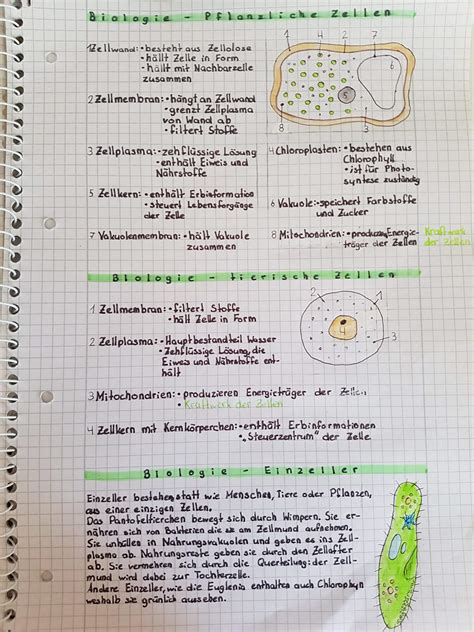 Biologie - Pflanzliche Zellen
1 Zellwand: • besteht aus Zellolose
• hällt Zelle in Form
• hällt mit Nachbarzelle
zusammen
1 4 2 7
5 6
8 3
2 Zellmembran: • hängt an Zellwand
• grenzt Zellplasma
von Wand ab
• filtert Stoffe
3 Zellplasma: • zehflüssige Lösung
• enthält Eiweis und
Nährstoffe
4 Chloroplasten: • bestehen aus
Chlorophyll
• ist für Photo-
syntese zuständig
5 Zellkern: • enthält Erbinformation
• steuert Lebensforgänge
der Zelle
6 Vakuole: • speichert Farbstoffe
und Zucker
7 Vakuolenmembran: • hält Vakuole
zusammen
8 Mitochondrien: • produzieren Energie-
träger der Zellen
Kraftwerk
der Zellen
Biologie - tierische Zellen
1 Zellmembran: • filtert Stoffe
• hält Zelle in Form
2 1
4 3
2 Zellplasma: • Hauptbestandteil Wasser
• Zehflüssige Lösung, die
Eiweis und Nährstoffe ent-
hält
3 Mitochondrien: • produzieren Energieträger der Zellen
• Kraftwerk der Zellen
4 Zellkern mit Kernkörperchen: • enthält Erbinformationen
• „Steuerzentrum" der Zelle
Biologie - Einzeller
Einzeller bestehen, statt wie Menschen, Tiere oder Pflanzen,
aus einer einzigen Zellen.
Das Pantofeltierchen bewegt sich durch Wimpern. Sie er-
nähren sich von Bakterien die es am Zellmund aufnehmen.
Sie umhüllen in Nahrungsvakuolen und geben es ins Zell-
plasma ab. Nahrungsreste geben sie durch den Zellafter
ab. Sie vermehren sich durch die Querteilung: der Zell-
mund wird dabei zur Tochterzelle.
Andere Einzeller, wie die Euglenia enthalten auch Chlorophyn
weshalb sie grünlich aussehen.